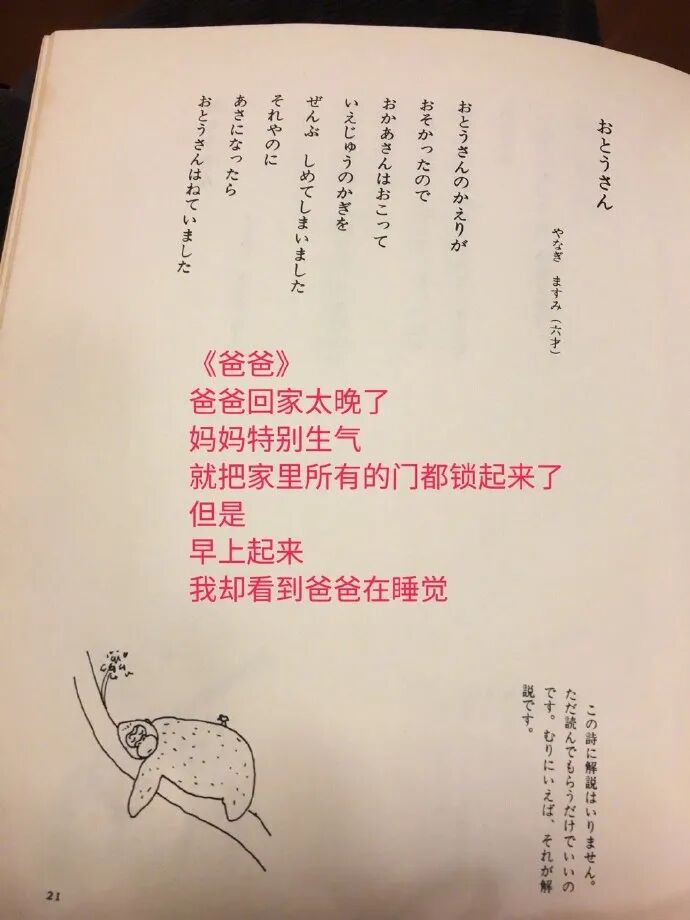 おとうさん
やなぎ　ますみ（六才）
おとうさんのかえりが
おそかったので
おかあさんはおこって
いえじゅうのかぎを
ぜんぶ　しめてしまいました
それやのに
あさになったら
おとうさんはねていました
《爸爸》
爸爸回家太晚了
妈妈特别生气
就把家里所有的门都锁起来了
但是
早上起来
我却看到爸爸在睡觉
この詩に解説はいりません。
ただ読んでもらうだけでいいの
です。むりにいえば、それが解
説です。
21